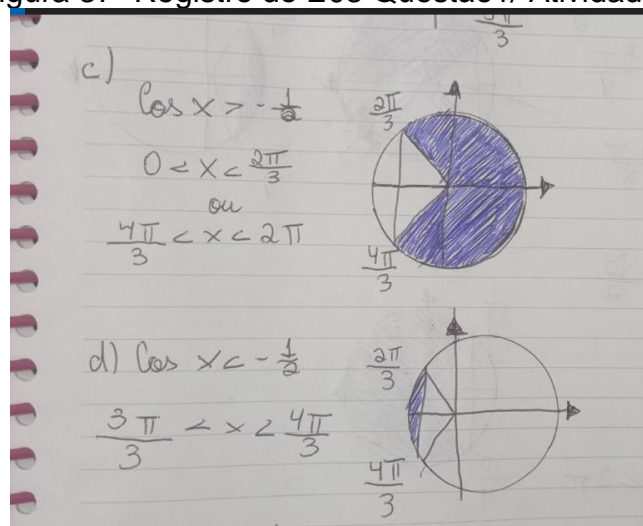 c)
Cos x > - 1/2
0 < x < 2π/3
ou
4π/3 < x < 2π
2π/3
4π/3
d) Cos x < - 1/2
3π/3 < x < 4π/3
2π/3
4π/3